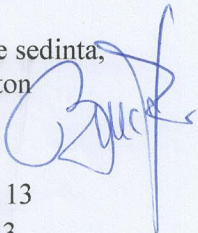 e sedinta,
ton
13
3